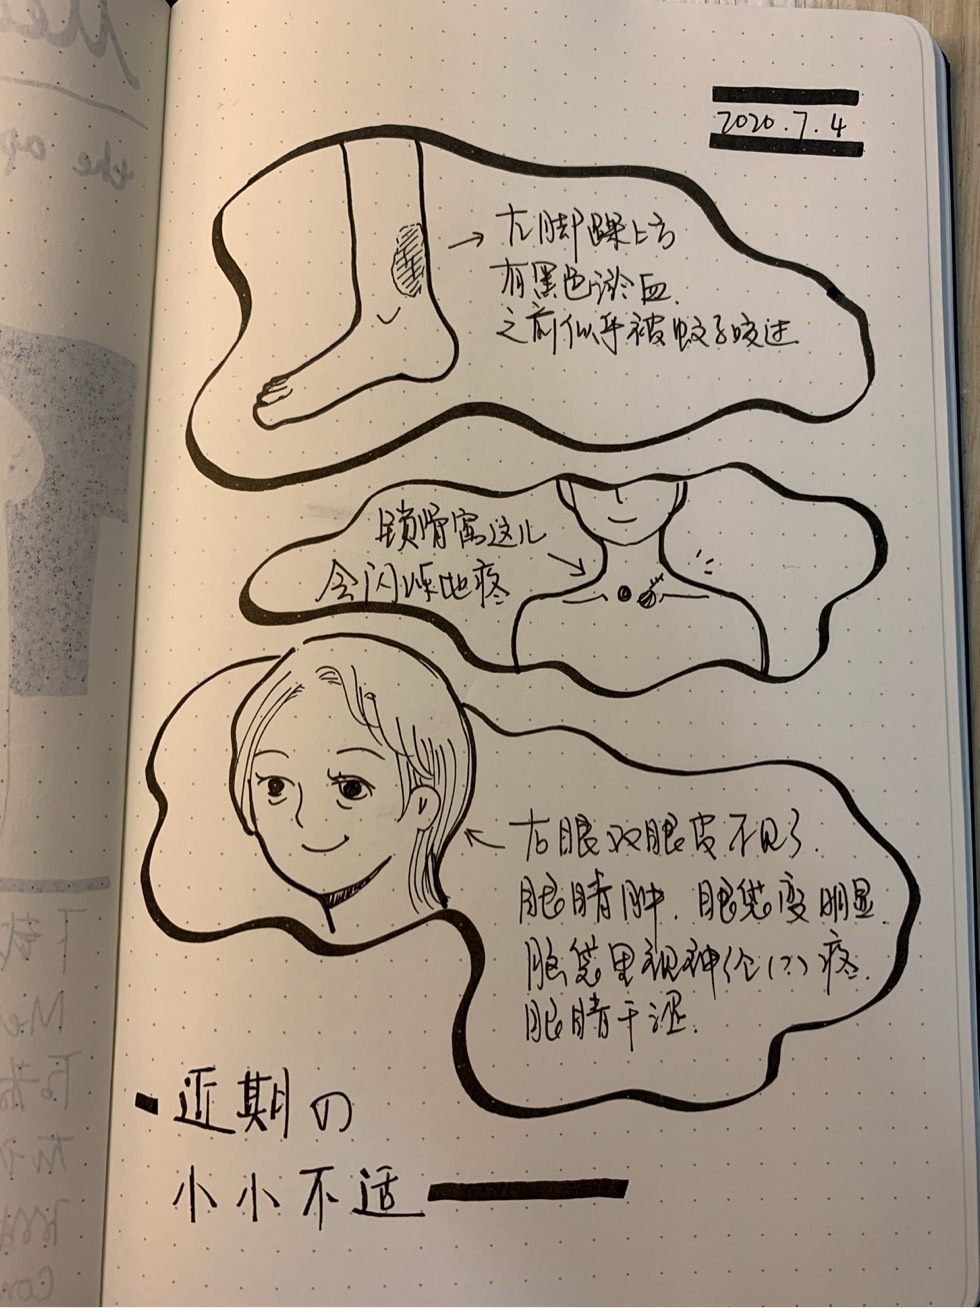 2020.7.4
左脚踝上方
有黑色淤血.
之前似乎被蚊子咬过
锁骨窝这儿
会闪烁地疼
右眼双眼皮不见了.
眼睛肿.眼袋变明显.
眼袋里视神经(?)疼.
眼睛干涩.
近期の
小小不适